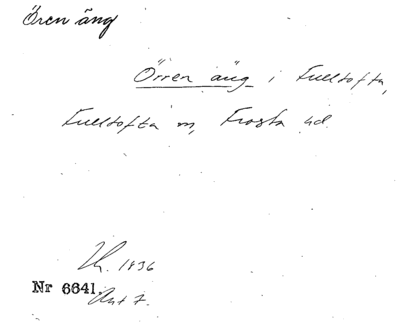 Ören äng
Örren äng i Fulltofta,
Fulltofta sn, Frosta hd.
1936
Nr 6641.
Ant 7.